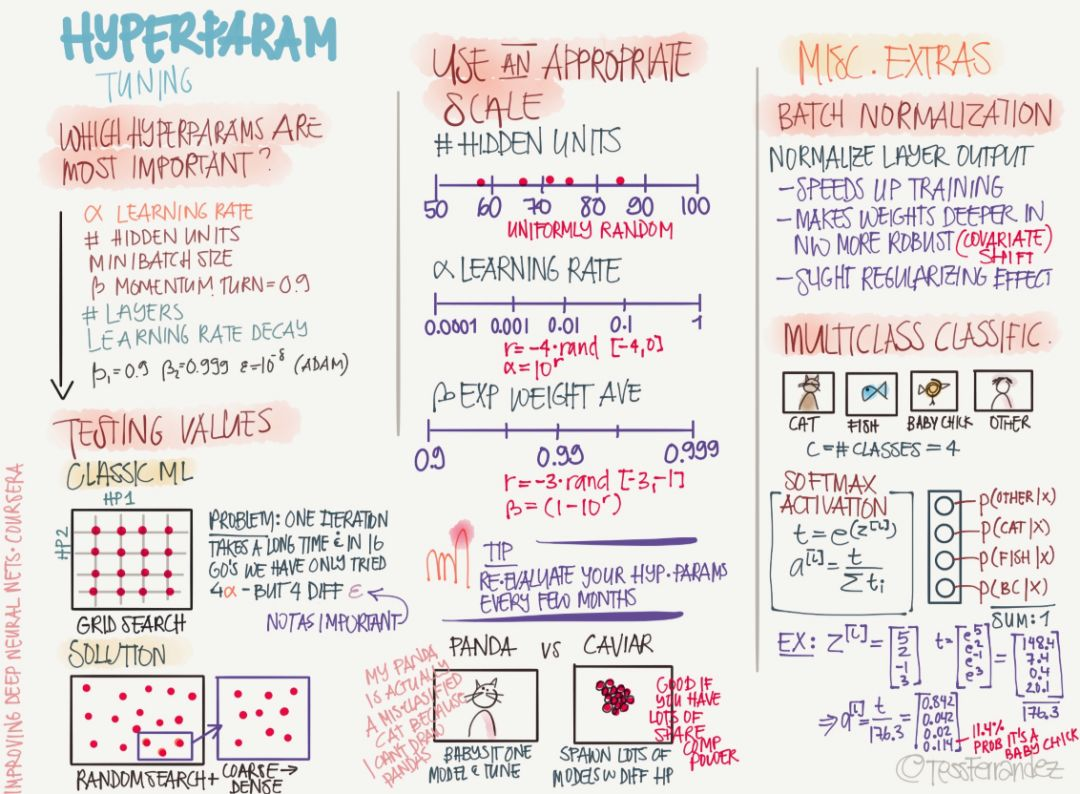 HYPERPARAM
TUNING
WHICH HYPERPARAMS ARE
MOST IMPORTANT?
α LEARNING RATE
# HIDDEN UNITS
MINIBATCH SIZE
β MOMENTUM TURN = 0.9
# LAYERS
LEARNING RATE DECAY
β₁=0.9 β₂=0.999 ε=10⁻⁸ (ADAM)
TESTING VALUES
CLASSIC ML
HP1
HP2
GRID SEARCH
PROBLEM: ONE ITERATION
TAKES A LONG TIME & IN 16
GO'S WE HAVE ONLY TRIED
4α - BUT 4 DIFF ε
NOT AS IMPORTANT
SOLUTION
RANDOM SEARCH +
COARSE →
DENSE
IMPROVING DEEP NEURAL NETS • COURSERA
USE AN APPROPRIATE
SCALE
# HIDDEN UNITS
50 60 70 80 90 100
UNIFORMLY RANDOM
α LEARNING RATE
0.0001 0.001 0.01 0.1 1
r=-4·rand [-4,0]
α=10ʳ
β EXP WEIGHT AVE
0.9 0.99 0.999
r=-3·rand [-3,-1]
β=(1-10ʳ)
TIP
RE-EVALUATE YOUR HYP. PARAMS
EVERY FEW MONTHS
PANDA VS CAVIAR
MY PANDA
IS ACTUALLY
A MISCLASSIFIED
CAT BECAUSE
I CAN'T DRAW
PANDAS
BABYSIT ONE
MODEL & TUNE
GOOD IF
YOU HAVE
LOTS OF
SPARE
COMP
POWER
SPAWN LOTS OF
MODELS W DIFF HP
MISC. EXTRAS
BATCH NORMALIZATION
NORMALIZE LAYER OUTPUT
- SPEEDS UP TRAINING
- MAKES WEIGHTS DEEPER IN
NW MORE ROBUST (COVARIATE)
SHIFT
- SLIGHT REGULARIZING EFFECT
MULTICLASS CLASSIFIC.
CAT FISH BABY CHICK OTHER
C = # CLASSES = 4
SOFTMAX
ACTIVATION
t = e^(z^[L])
a^[L] = t / Σ tᵢ
P(OTHER|X)
P(CAT|X)
P(FISH|X)
P(BC|X)
SUM: 1
EX: z^[L] = [5 2 -1 3] t = [e⁵ e² e⁻¹ e³] = [148.4 7.4 0.4 20.1]
176.3
⇒ a^[L] = t / 176.3 = [0.842 0.042 0.02 0.114]
11.4%
PROB IT'S A
BABY CHICK
©TessFerrandez